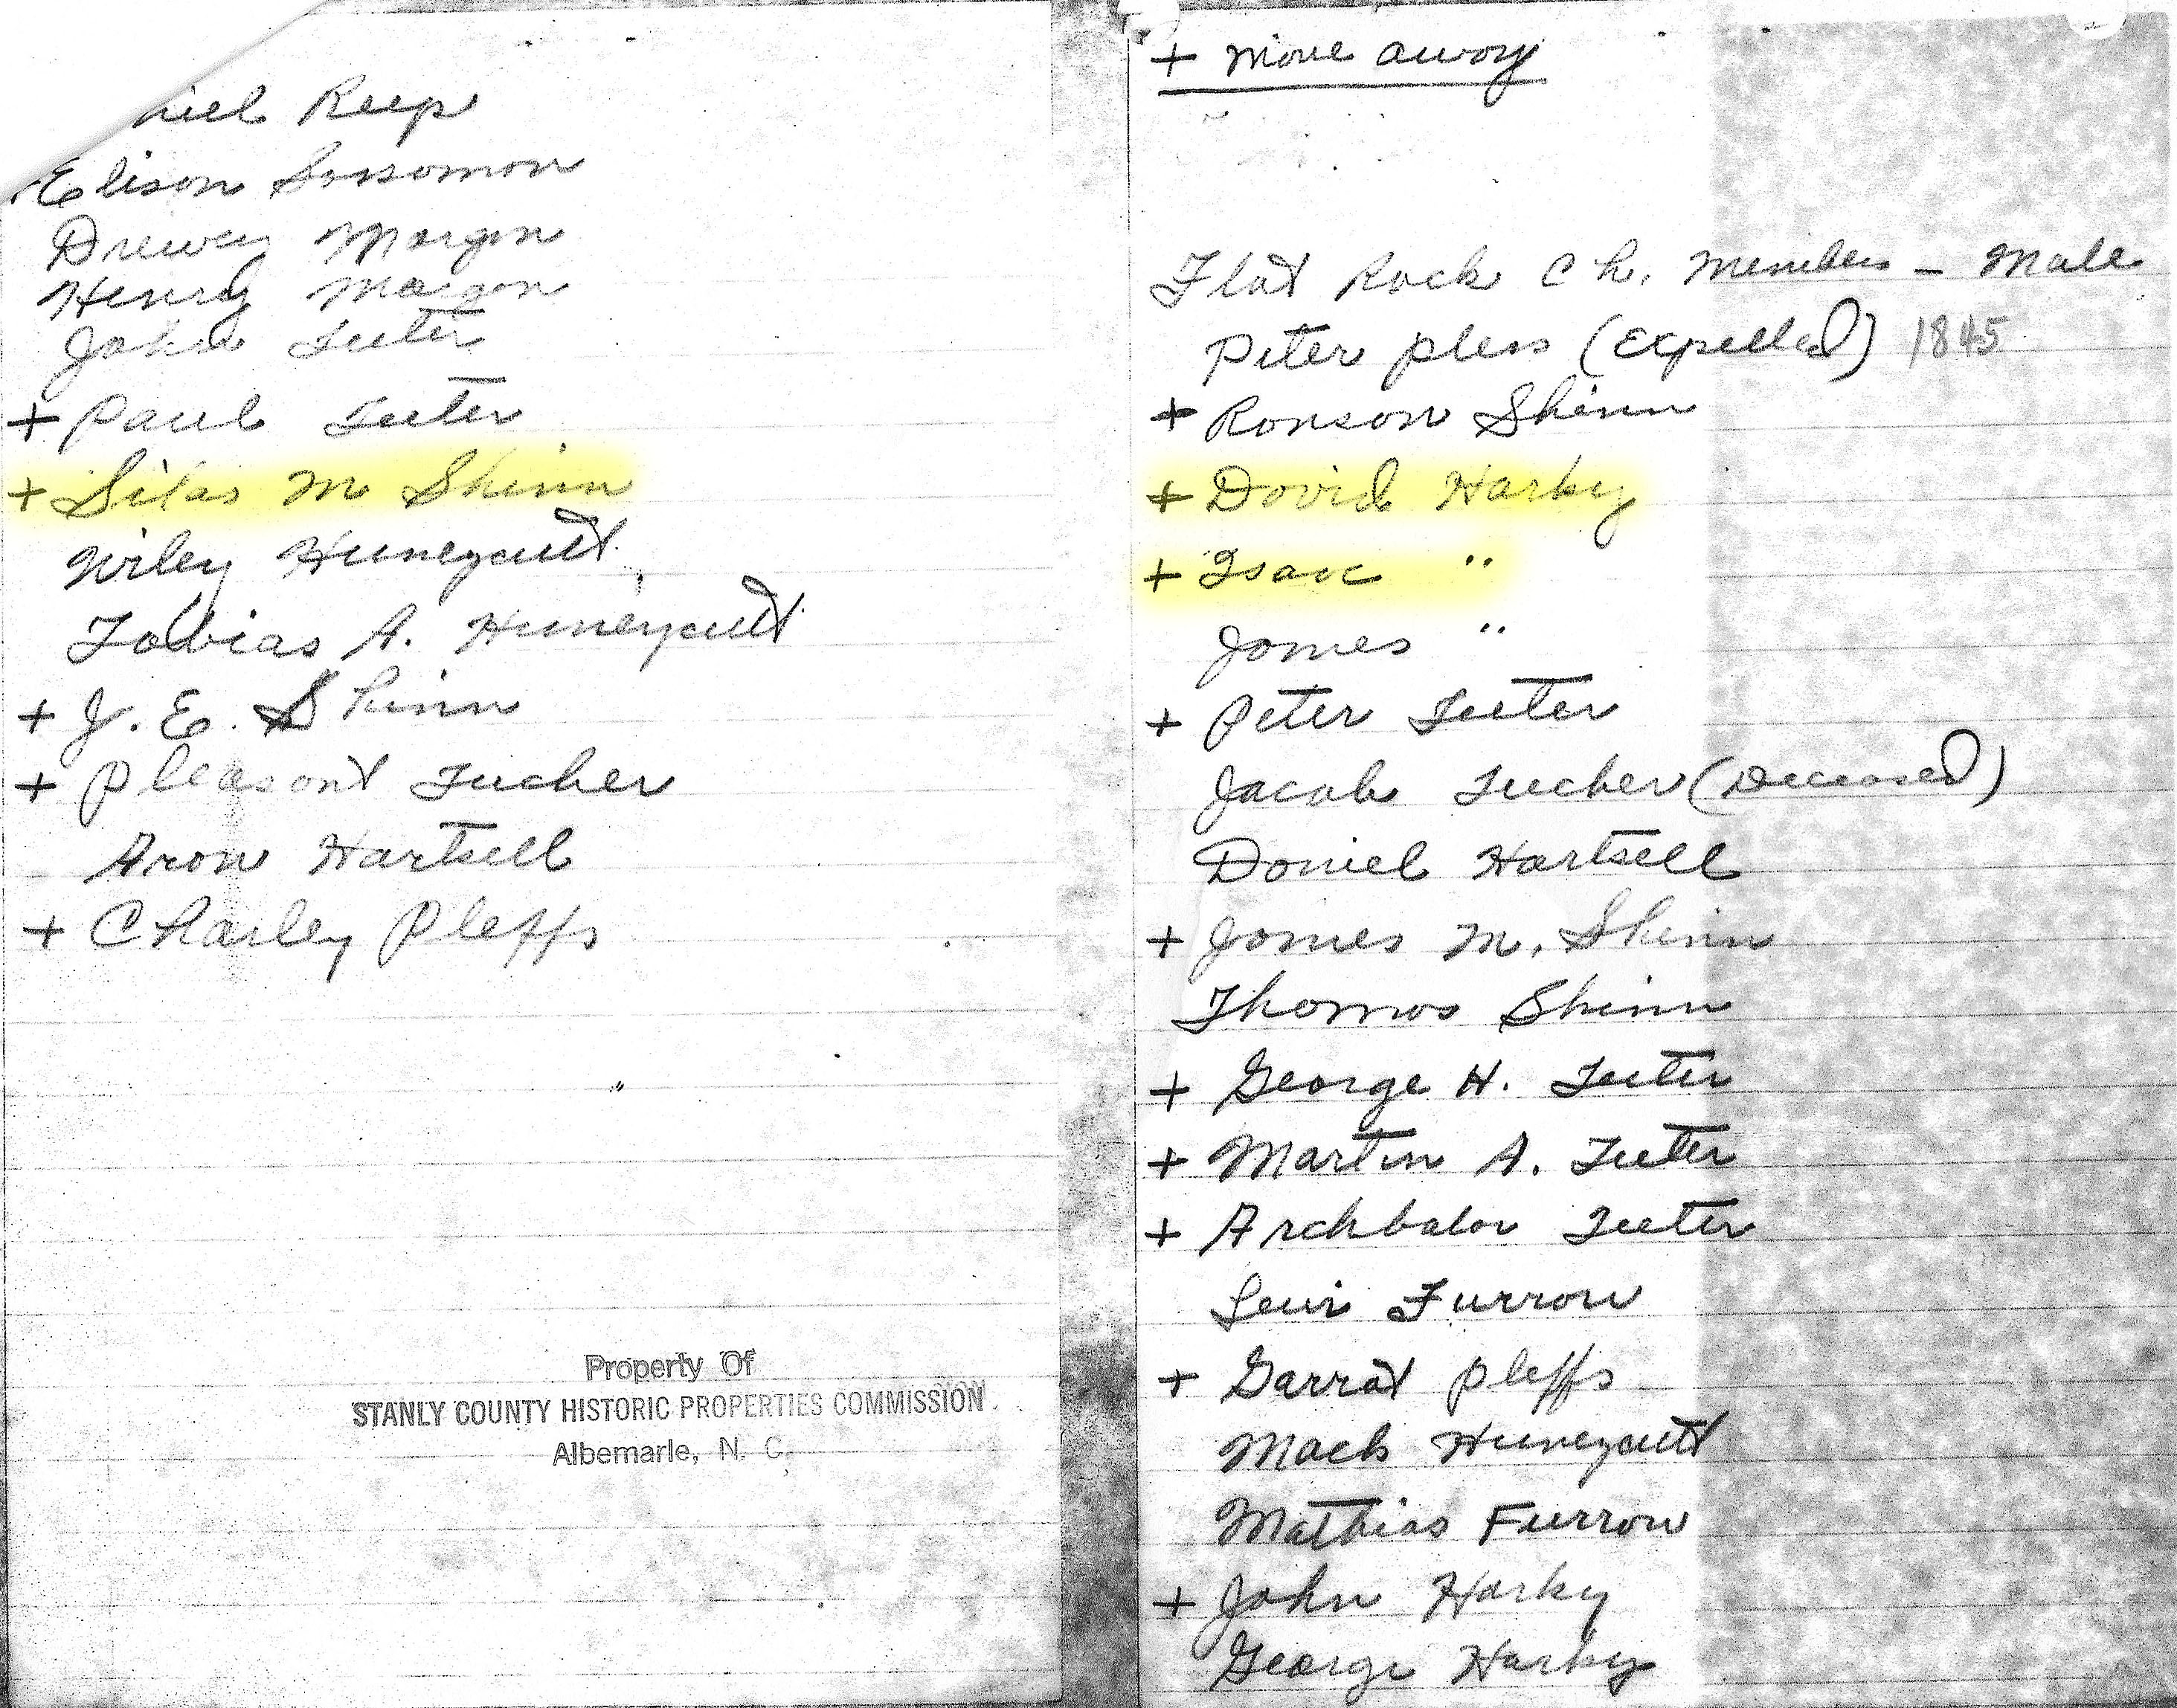 niel Reep
Elison Sossomon
Drewey Morgan
Henry Morgan
John Teeter
+ Paul Teeter
+ Silas M Shinn
Wiley Huneycutt
Tobias A. Huneycutt
+ J. E. Shinn
+ Pleasant Tucker
Aron Hartsell
+ Charley Pleffs
Property Of
STANLY COUNTY HISTORIC PROPERTIES COMMISSION
Albemarle, N. C.
+ Move away
Flat Rock Ch. Members - Male
Peter Pless (Expelled) 1845
+ Ronson Shinn
+ David Harky
+ Isaac "
James "
+ Peter Teeter
Jacob Tucker (Deceased)
Daniel Hartsell
+ James M. Shinn
Thomas Shinn
+ George H. Teeter
+ Martin A. Teeter
+ Archbalor Teeter
Levi Furrow
+ Garrat Pleffs
Mack Huneycutt
Mathias Furrow
+ John Harky
George Harky